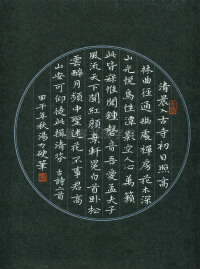 清晨入古寺初日照高
林曲径通幽處禪房花木深
山光悦鳥性潭影空人心萬籟
此皆寂惟聞鐘磬音吾愛孟夫子
風流天下聞紅顔棄軒冕白首卧松
雲醉月頻中聖迷花不事君高
山安可仰徒此揖清芬 古詩二首
甲午年秋湯力硬筆